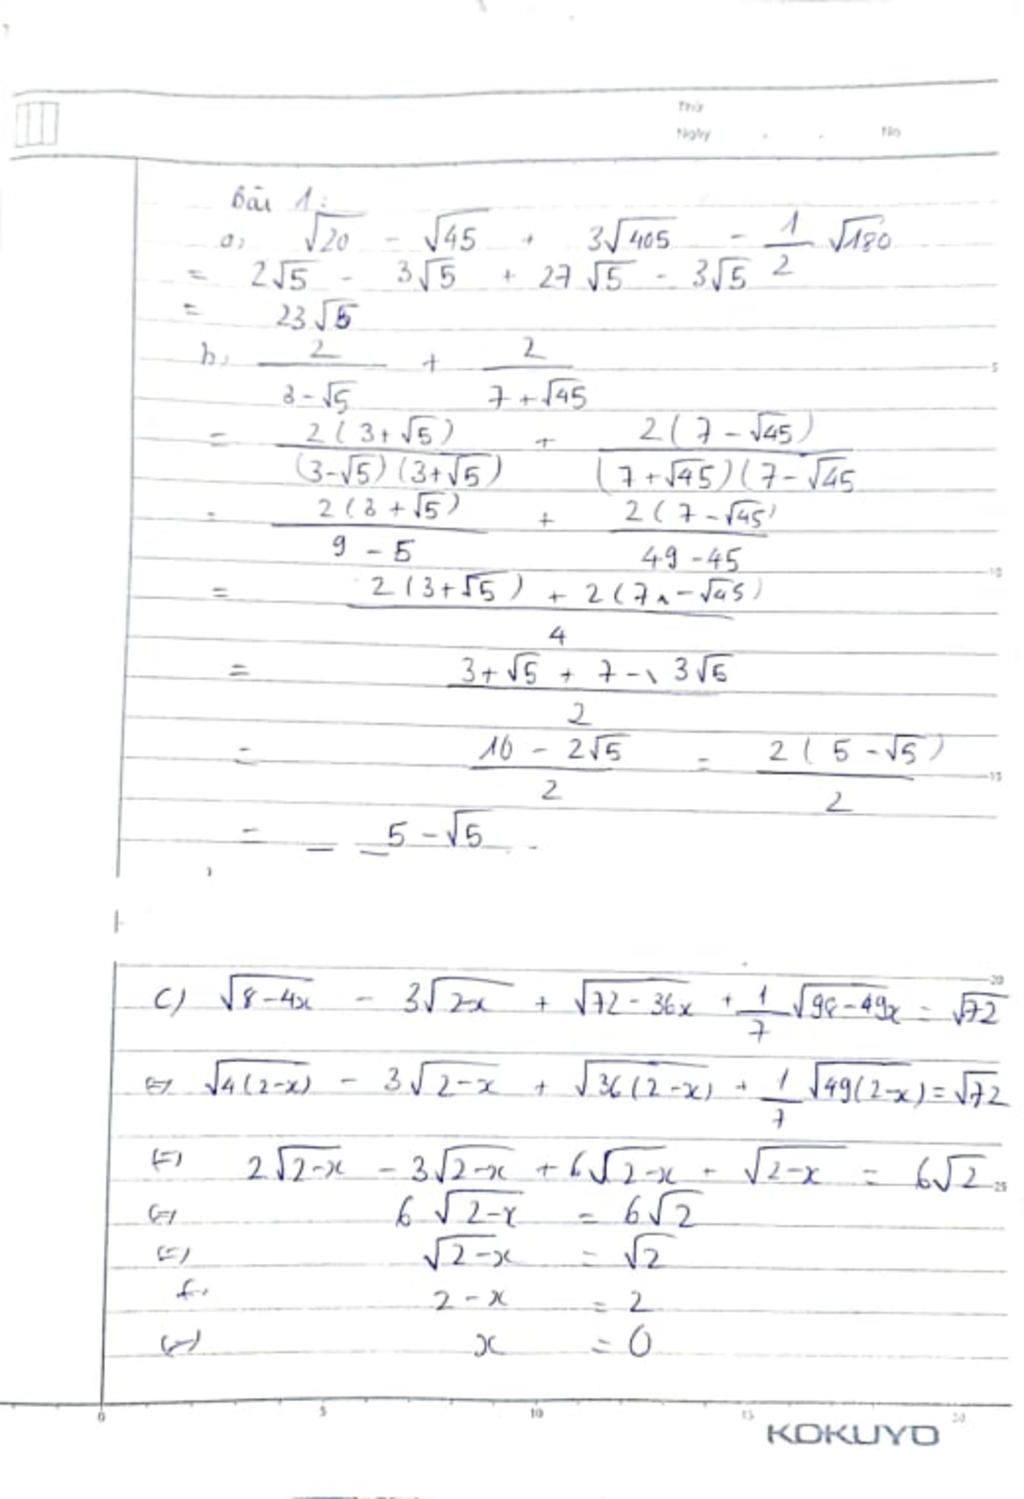 Thứ
Ngày . . No
Bài 1:
a, √20 - √45 + 3√405 - 1/2 √180
= 2√5 - 3√5 + 27√5 - 3√5
= 23√5
b, 2/(3-√5) + 2/(7+√45)
= 2(3+√5)/((3-√5)(3+√5)) + 2(7-√45)/((7+√45)(7-√45
= 2(3+√5)/(9-5) + 2(7-√45)/(49-45)
= (2(3+√5) + 2(7-√45))/4
= (3+√5 + 7-3√5)/2
= (10-2√5)/2 = 2(5-√5)/2
= 5-√5
c) √(8-4x) - 3√(2-x) + √(72-36x) + 1/7 √(98-49x) = √72
⇔ √(4(2-x)) - 3√(2-x) + √(36(2-x)) + 1/7 √(49(2-x)) = √72
⇔ 2√(2-x) - 3√(2-x) + 6√(2-x) + √(2-x) = 6√2
⇔ 6√(2-x) = 6√2
⇔ √(2-x) = √2
2-x = 2
⇔ x = 0
0 5 10 15 20
KOKUYO